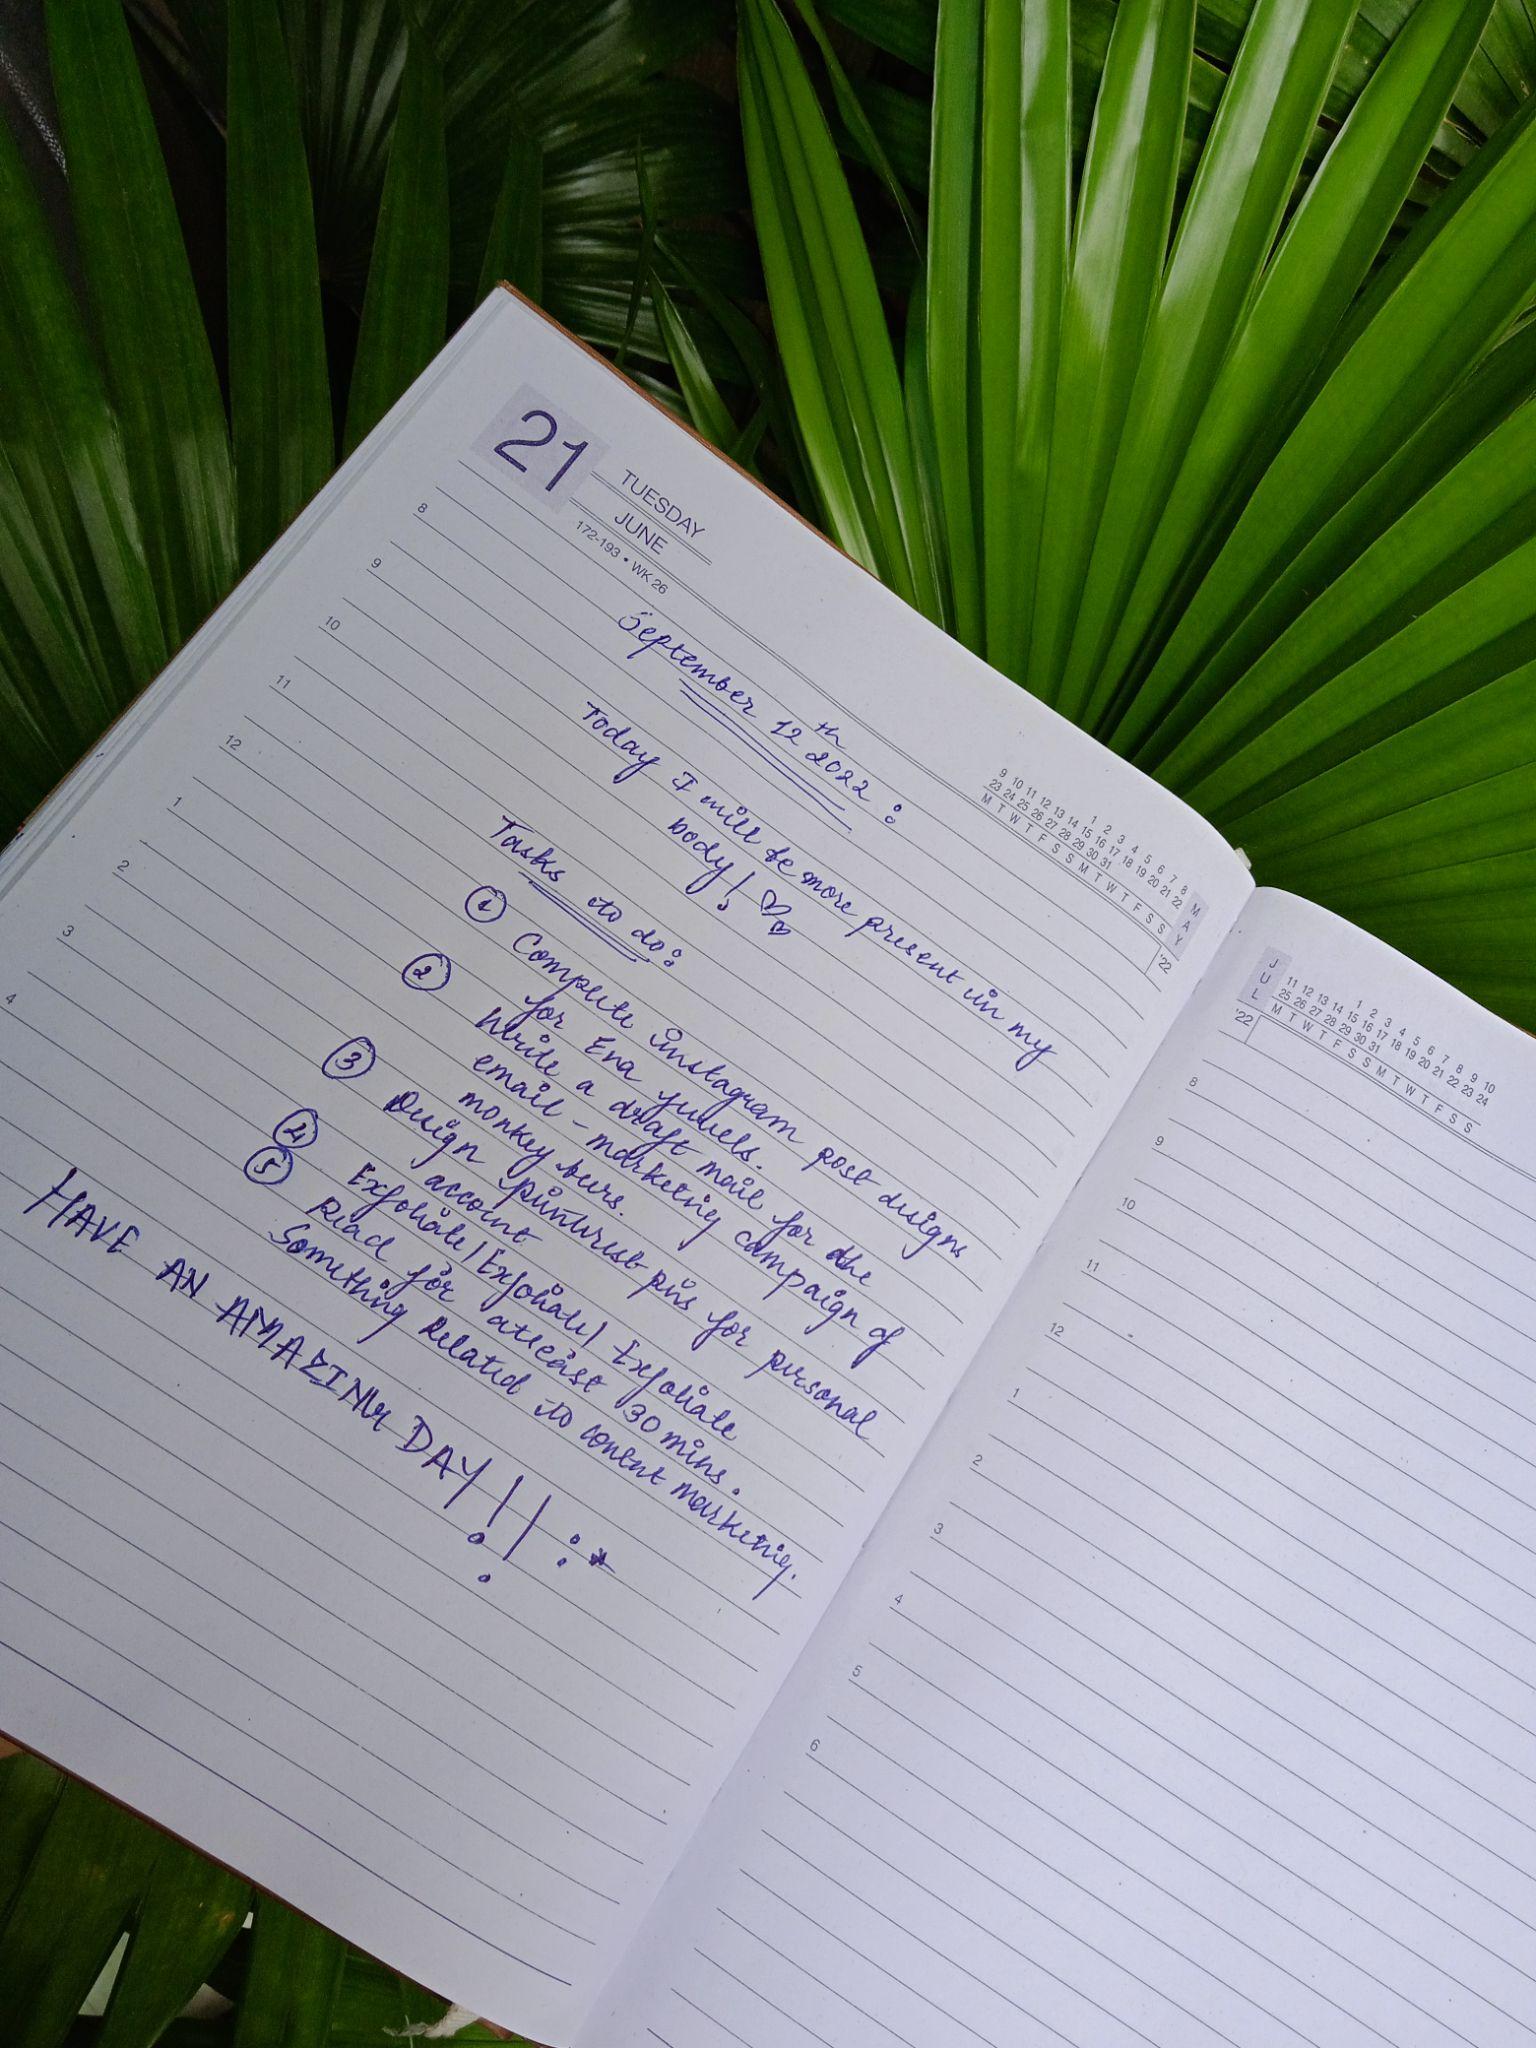 21
TUESDAY
JUNE
172-193 • WK 26
9 10 11 12 13 14 15 16 17 18 19 20 21 22
1 2 3 4 5 6 7 8
23 24 25 26 27 28 29 30 31
M T W T F S S M T W T F S S
MAY
'22
8
9
10
11
12
1
2
3
4
September 12th 2022 :
Today I will be more present in my
body!
Tasks to do:
1 Complete instagram post designs
for Ena
2 Write a draft mail for the
email - marketing campaign of
monkey
3 Design pinterest pins for personal
account
4 Exfoliate/Exfoliate/Exfoliate
5 Read for atleast 30 mins.
Something Related to content marketing.
HAVE AN AMAZING DAY!! :*
JUL
'22
1 2 3 4 5 6 7 8 9 10
11 12 13 14 15 16 17 18 19 20 21 22 23 24
25 26 27 28 29 30 31
M T W T F S S M T W T F S S
8
9
10
11
12
1
2
3
4
5
6